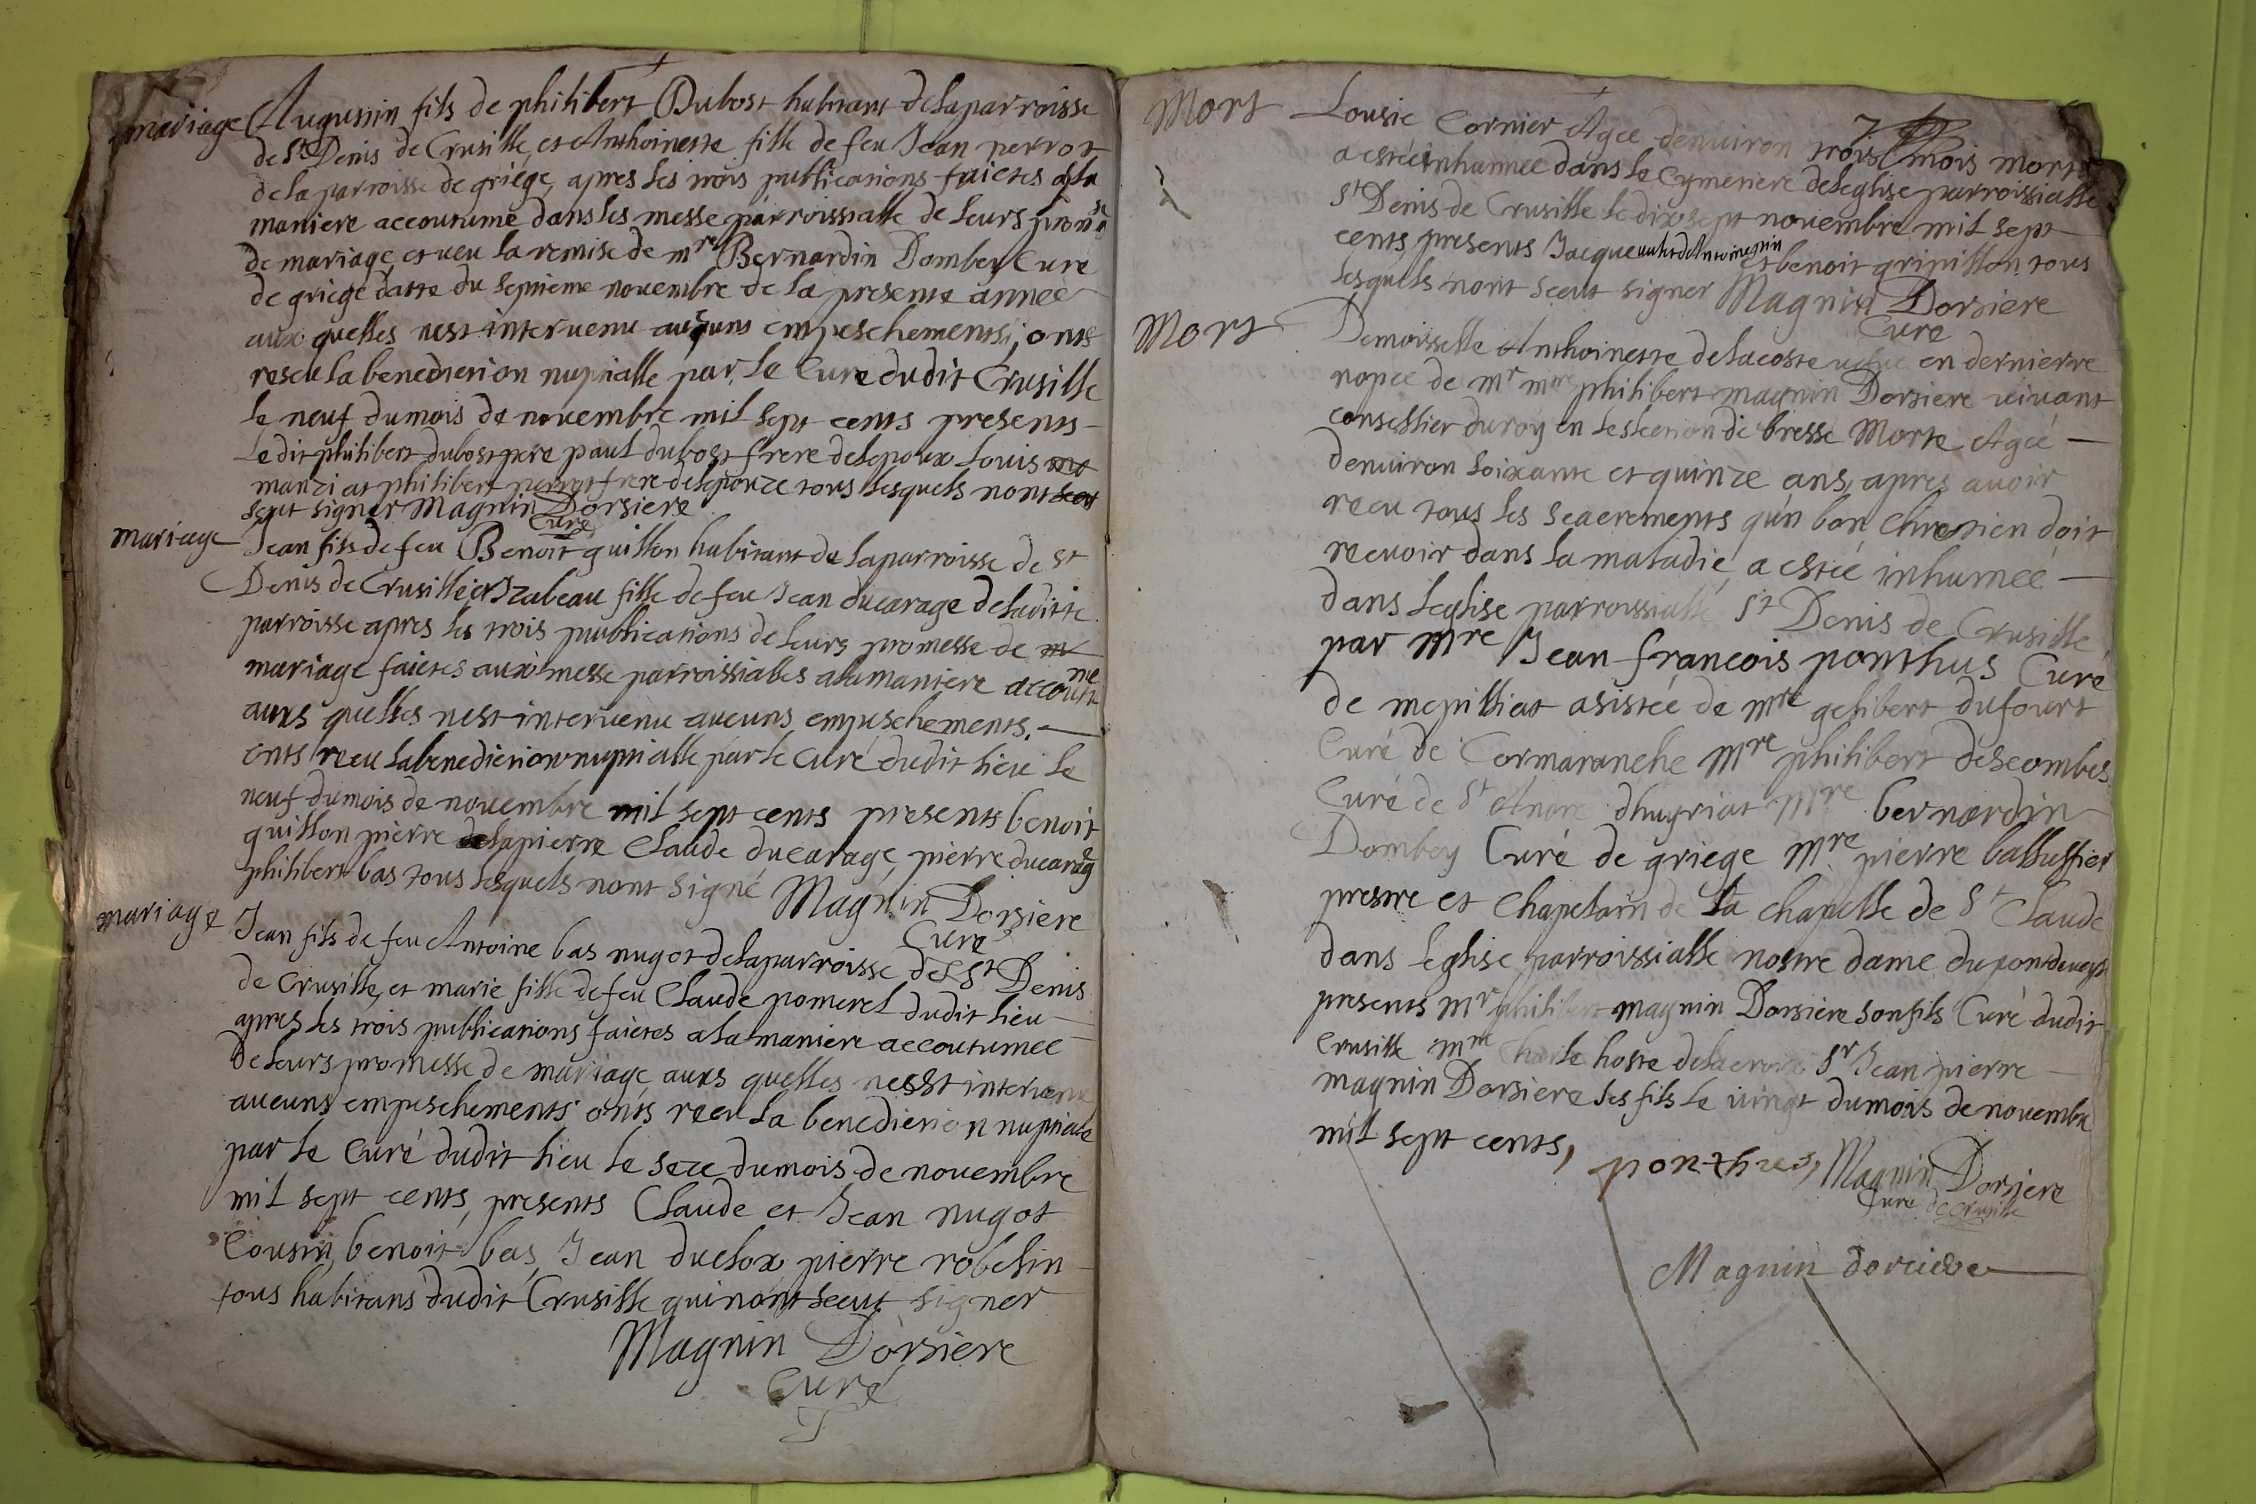 mariage Augustin fils de philibert Dubost habitant de la parroisse
de St Denis de Crusille, et Anthoinette fille de feu Jean perrot
de la parroisse de griége, apres les trois publications faictes a la
maniere accoutumé dans les messe parroissialle de leurs prom
de mariage, et veu la remise de mre Bernardin Dombey Curé
de griege datte du septieme novembre de la presente année
aux quelles nest intervenu aucuns empeschements, onts
reseu la benediction nuptialle par le Curé dudit Crusille
le neuf du mois de novembre mil sept cents presents
Ledit philibert dubost pere paul dubost frere de lepoux Louis
manzi et philibert perrot frere de lepouze tous lesquels nont
sceut signer Magnin Dorsiere
Curé
mariage Jean fils de feu Benoit guillon habitant de la parroisse de St
Denis de Crusille et Izabeau fille de feu Jean ducarage de laditte
parroisse apres les trois publications de leurs promesse de
mariage faictes aux messe parroissialles a la maniere accoutumé
aux quelles nest intervenu aucuns empeschements.
onts receu la benediction nuptialle par le Curé dudit lieu le
neuf du mois de novembre mil sept cents presents benoit
guillon pierre delapierre Claude ducarage, pierre ducarage
philibert bas tous lesquels nont signé Magnin Dorsiere
Curé
mariage Jean fils de feu Antoine bas nugot de la parroisse de St Denis
de Crusille, et marie fille de feu Claude pomerel dudit lieu
apres les trois publications faictes a la maniere accoutumee
de leurs promesse de mariage, aux quelles nesst intervenu
aucuns empeschements onts receu la benediction nuptiale
par le Curé dudit lieu le seze du mois de novembre
mil sept cents, presents Claude et Jean nugot
Cousin, benoit bas, Jean duclox pierre robelin
tous habitans dudit Crusille qui nont sceut signer
Magnin Dorsiere
Curé
7.
Mort Lousie Cornier Agee denuiron trois mois morte
a estée inhumee dans le Cymetiere de leglise parroissialle
St Denis de Crusille le dix sept novembre mil sept
cents, presents Jacque et benoit gripillon tous
lesquels nont sceut signer Magnin Dorsiere
Curé
Mort Demoisselle Anthoinette de lacoste en dernierre
nopce de mr mre philibert magnin Dorsiere vivant
conseillier du roy en leslection de bresse Morte Agée
denuiron soixante et quinze ans, apres avoir
receu tous les seacrements quin bon Chrestien doit
recevoir dans la maladie, a estée inhumée
dans leglise parroissialle St Denis de Crusille
par Mre Jean francois ponthus Curé
de mepilliat asistée de mre gelibert dufourt
Curé de Cormaranche Mre philibert descombes
Curé de St Andre dhuyriat Mre bernardin
Dombey Curé de griege Mre pierre balluffier
prestre et Chapelain de la chapelle de St Claude
dans leglise parroissialle nostre dame du pontdeveyle
presents mr philibert magnin Dorsiere son fils Curé dudit
Crusille mre hoste de la Sr Jean pierre
magnin Dorsiere ses fils le vingt du mois de novembre
mil sept cents,
ponthus, Magnin Dorsiere
Curé de Crusille
Magnin dorcière